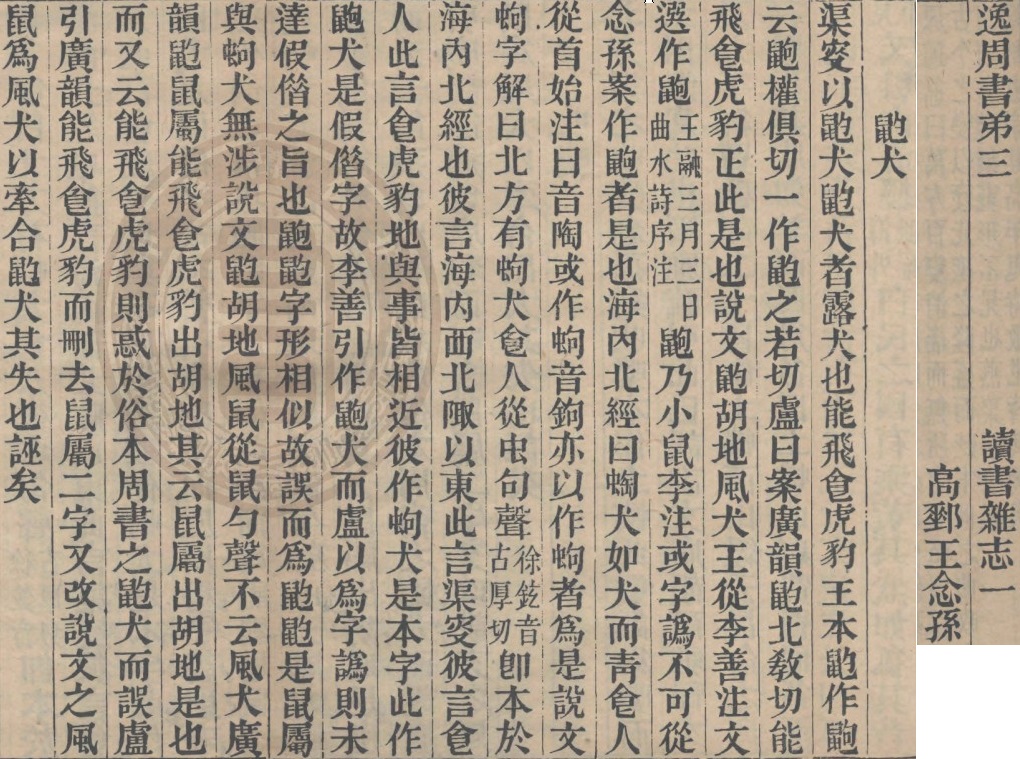 逸周書弟三 讀書雜志一
高郵王念孫
䶂犬
渠叜以䶂犬䶂犬者露犬也能飛食虎豹王本䶂作鼩
云鼩權俱切一作䶂之若切盧曰案廣韻䶂北敎切能
飛食虎豹正此是也說文䶂胡地風犬王從李善注文
選作鼩王融三月三日曲水詩序注鼩乃小鼠李注或字譌不可從
念孫案作鼩者是也海內北經曰蜪犬如犬而青食人
從首始注曰音陶或作蚼音鉤亦以作蚼者爲是說文
蚼字解曰北方有蚼犬食人從虫句聲徐鉉音古厚切卽本於
海內北經也彼言海內西北陬以東此言渠叜彼言食
人此言食虎豹地與事皆相近彼作蚼犬是本字此作
鼩犬是假借字故李善引作鼩犬而盧以爲字譌則未
達假借之旨也鼩䶂字形相似故誤而爲䶂䶂是鼠屬
與蚼犬無涉說文䶂胡地風鼠從鼠勺聲不云風犬廣
韻䶂鼠屬能飛食虎豹出胡地其云鼠屬出胡地是也
而又云能飛食虎豹則惑於俗本周書之䶂犬而誤盧
引廣韻能飛食虎豹而刪去鼠屬二字又改說文之風
鼠爲風犬以牽合䶂犬其失也誣矣